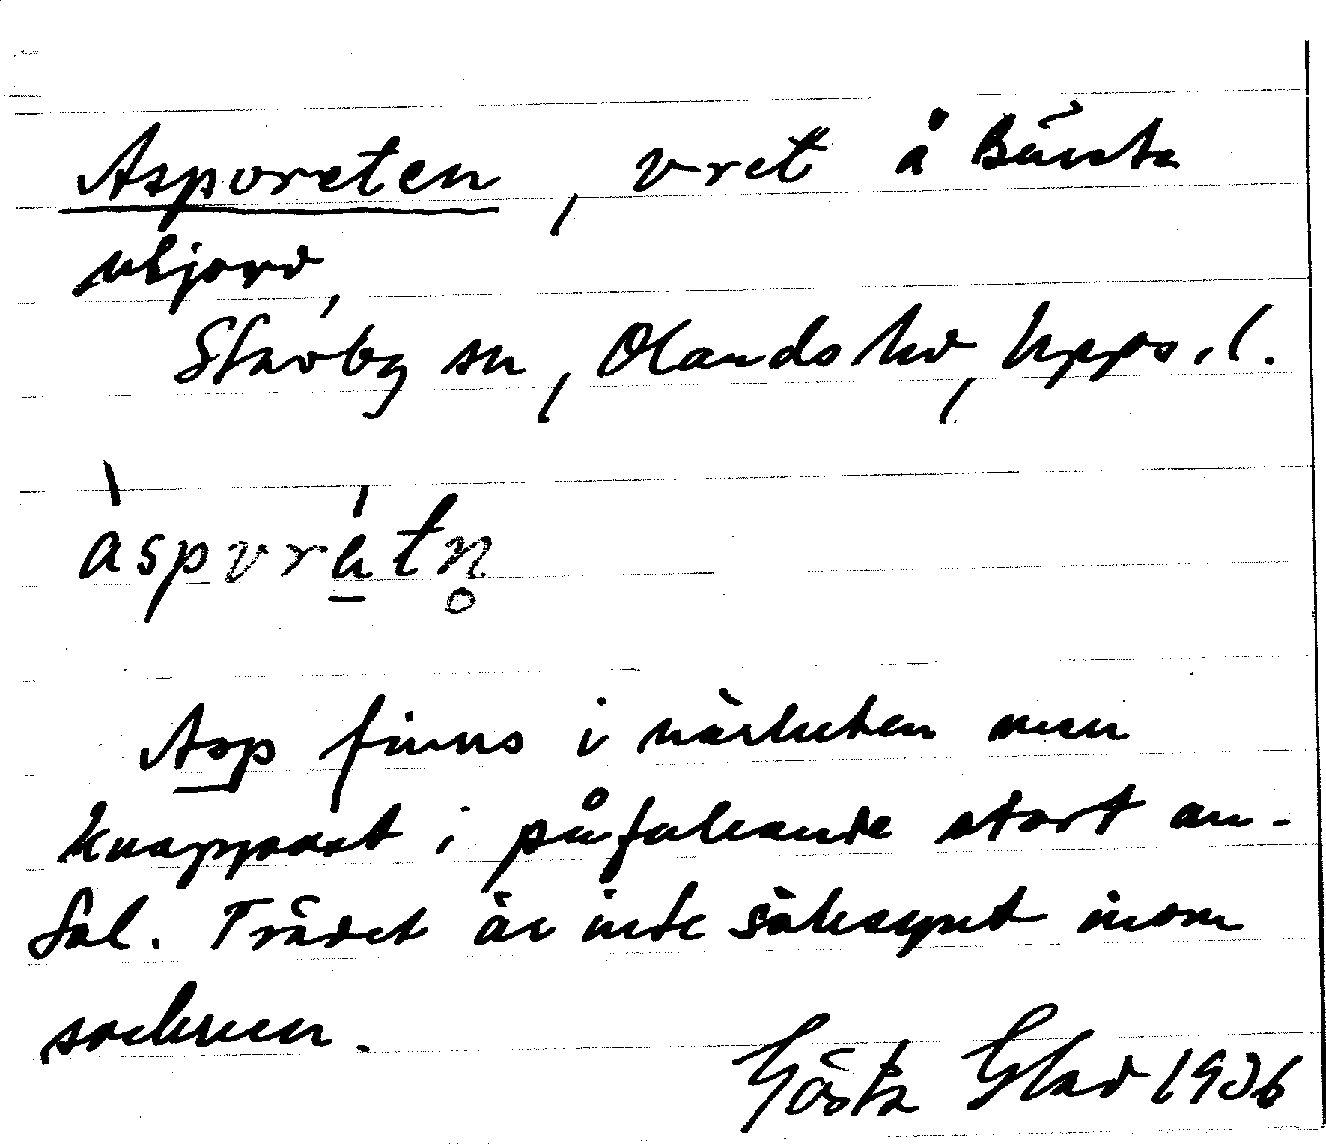 Aspvreten, vret å Bärsta
utjord,
Stavby sn, Olands hd, Upps. l.
àspvrä́tn̥
Asp finns i närheten men
knappast i påfallande stort an-
tal. Trädet är inte sällsynt inom
socknen.
Gösta Glad 1936